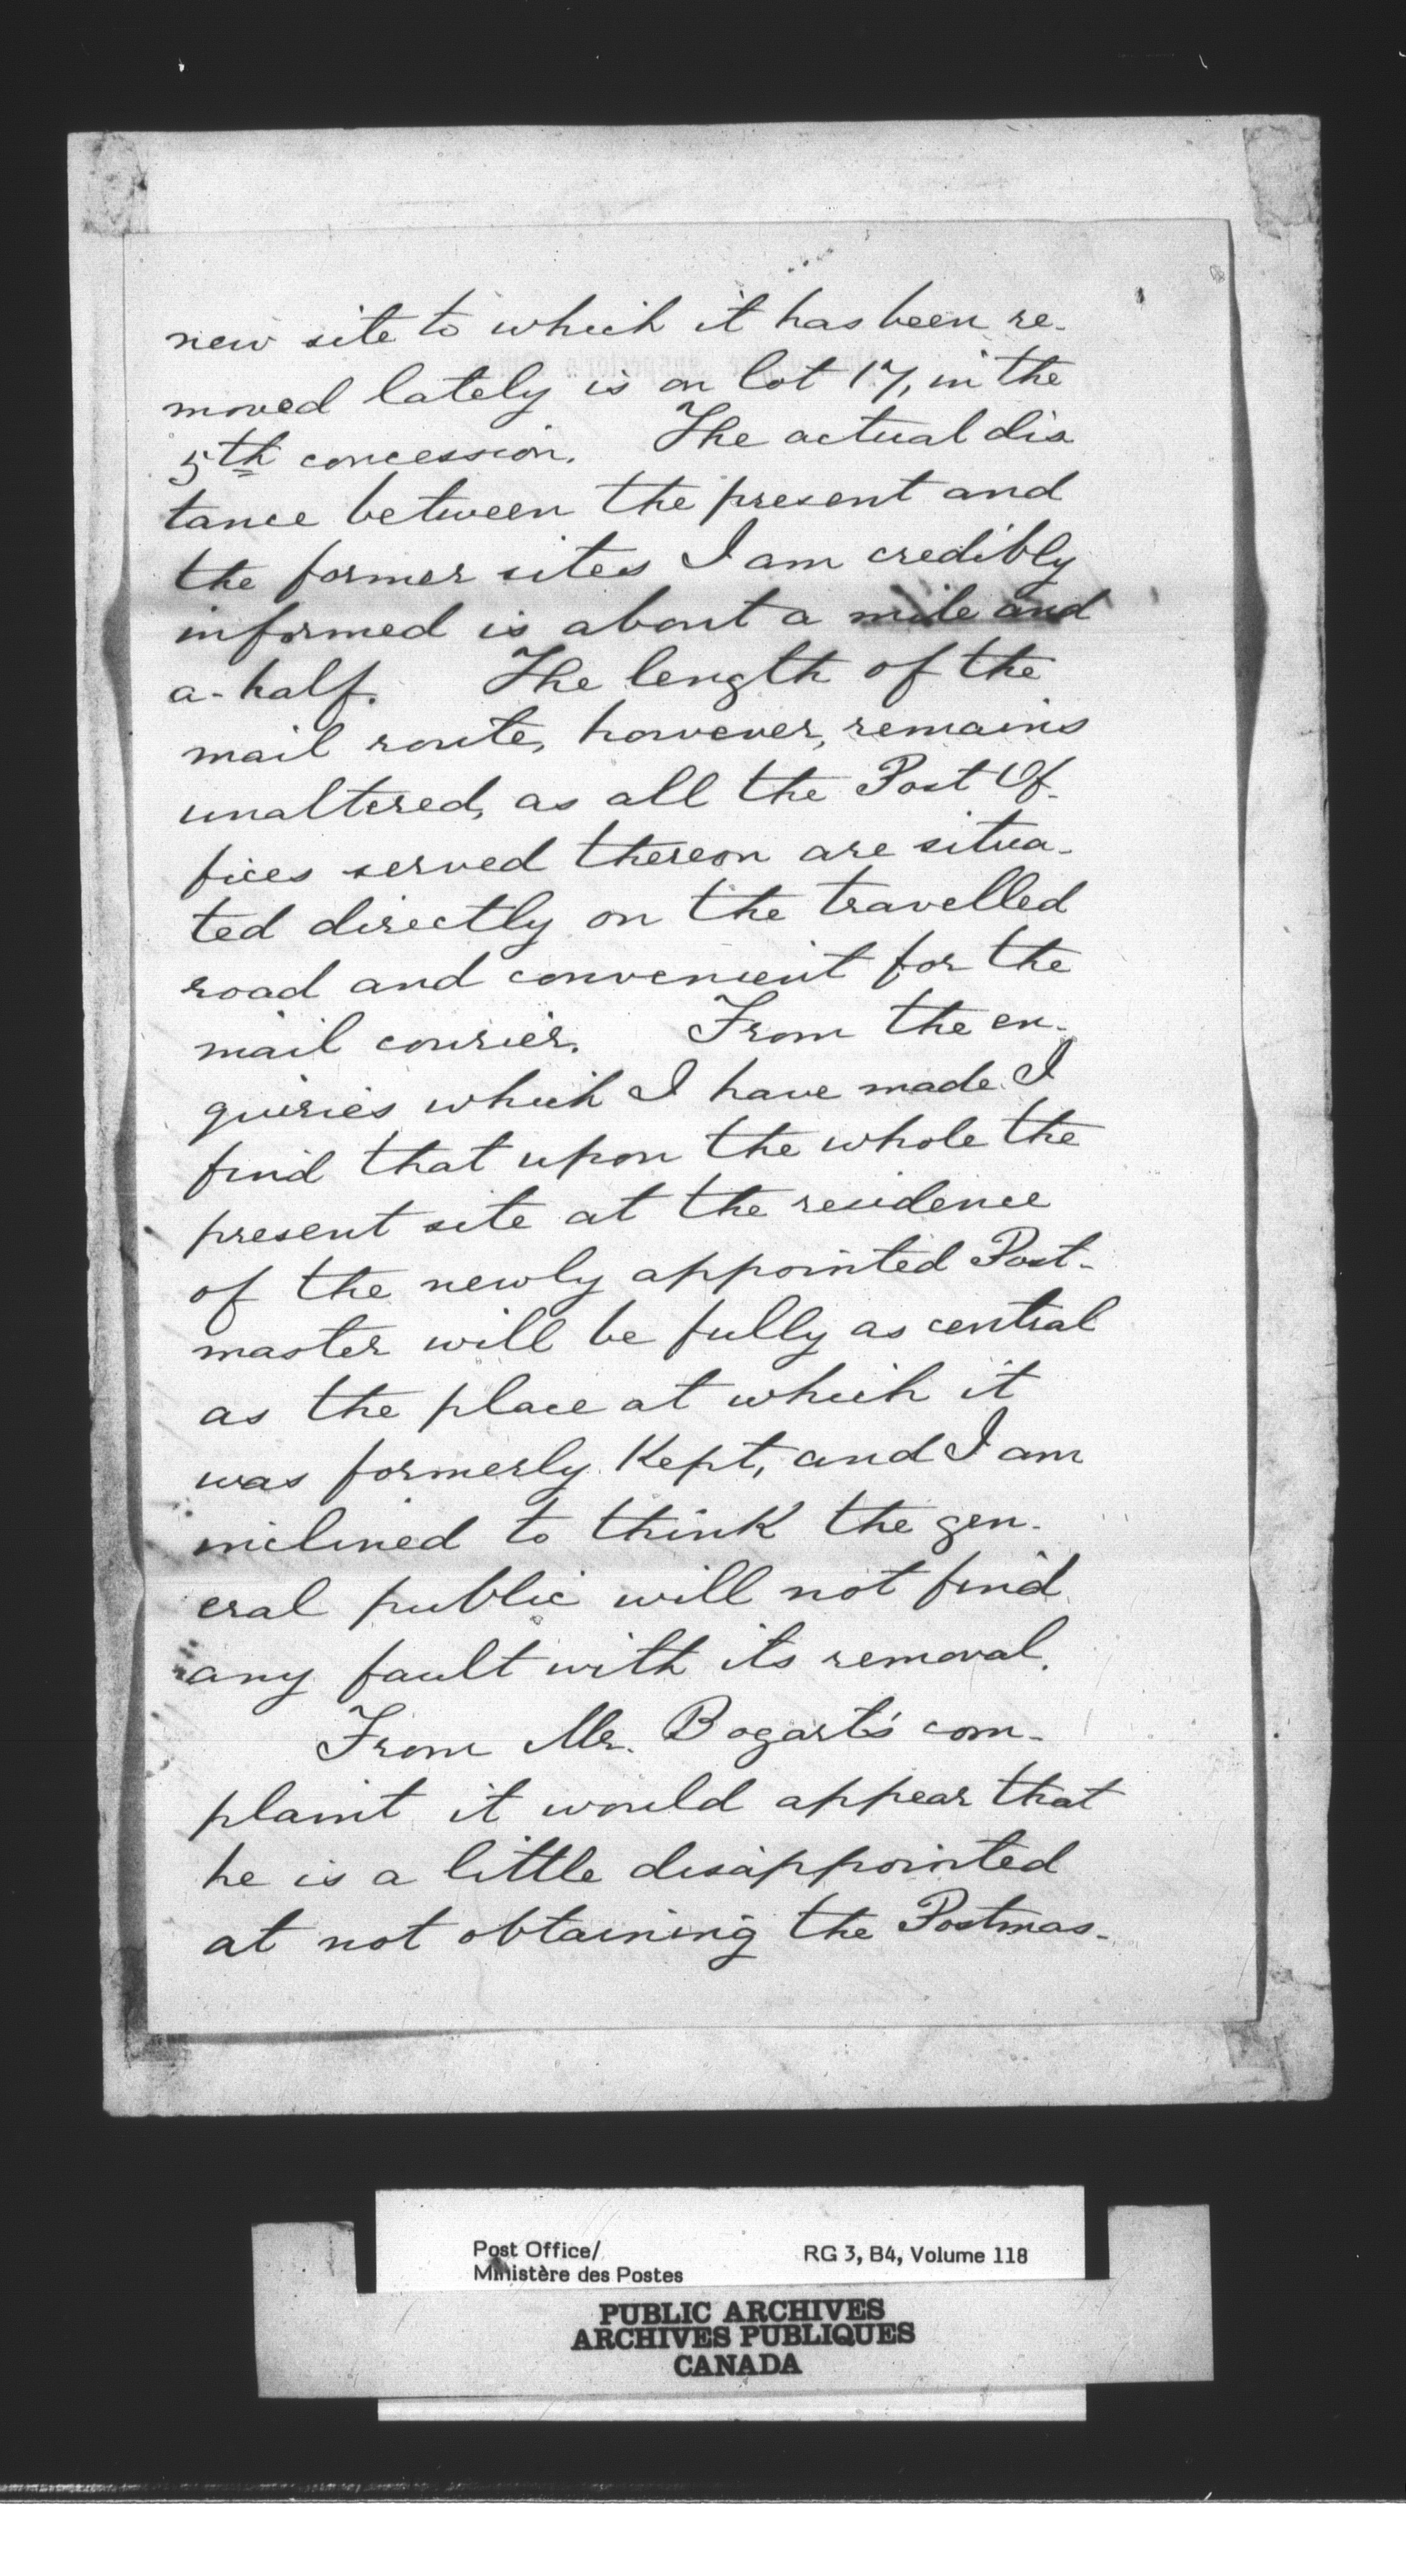 new site to which it has been re-
moved lately is on lot 17, in the
5th concession. The actual dis
tance between the present and
the former sites I am credibly
informed is about a mile and
a-half. The length of the
mail route, however, remains
unaltered, as all the Post Of-
fices served thereon are situa-
ted directly on the travelled
road and convenient for the
mail courier. From the en-
quiries which I have made I
find that upon the whole the
present site at the residence
of the newly appointed Post-
master will be fully as central
as the place at which it
was formerly Kept, and I am
inclined to think the gen-
eral public will not find
any fault with its removal.
From Mr. Bogart's com-
plaint it would appear that
he is a little disappointed
at not obtaining the Postmas-
Post Office/ RG 3, B4, Volume 118
Ministère des Postes
PUBLIC ARCHIVES
ARCHIVES PUBLIQUES
CANADA